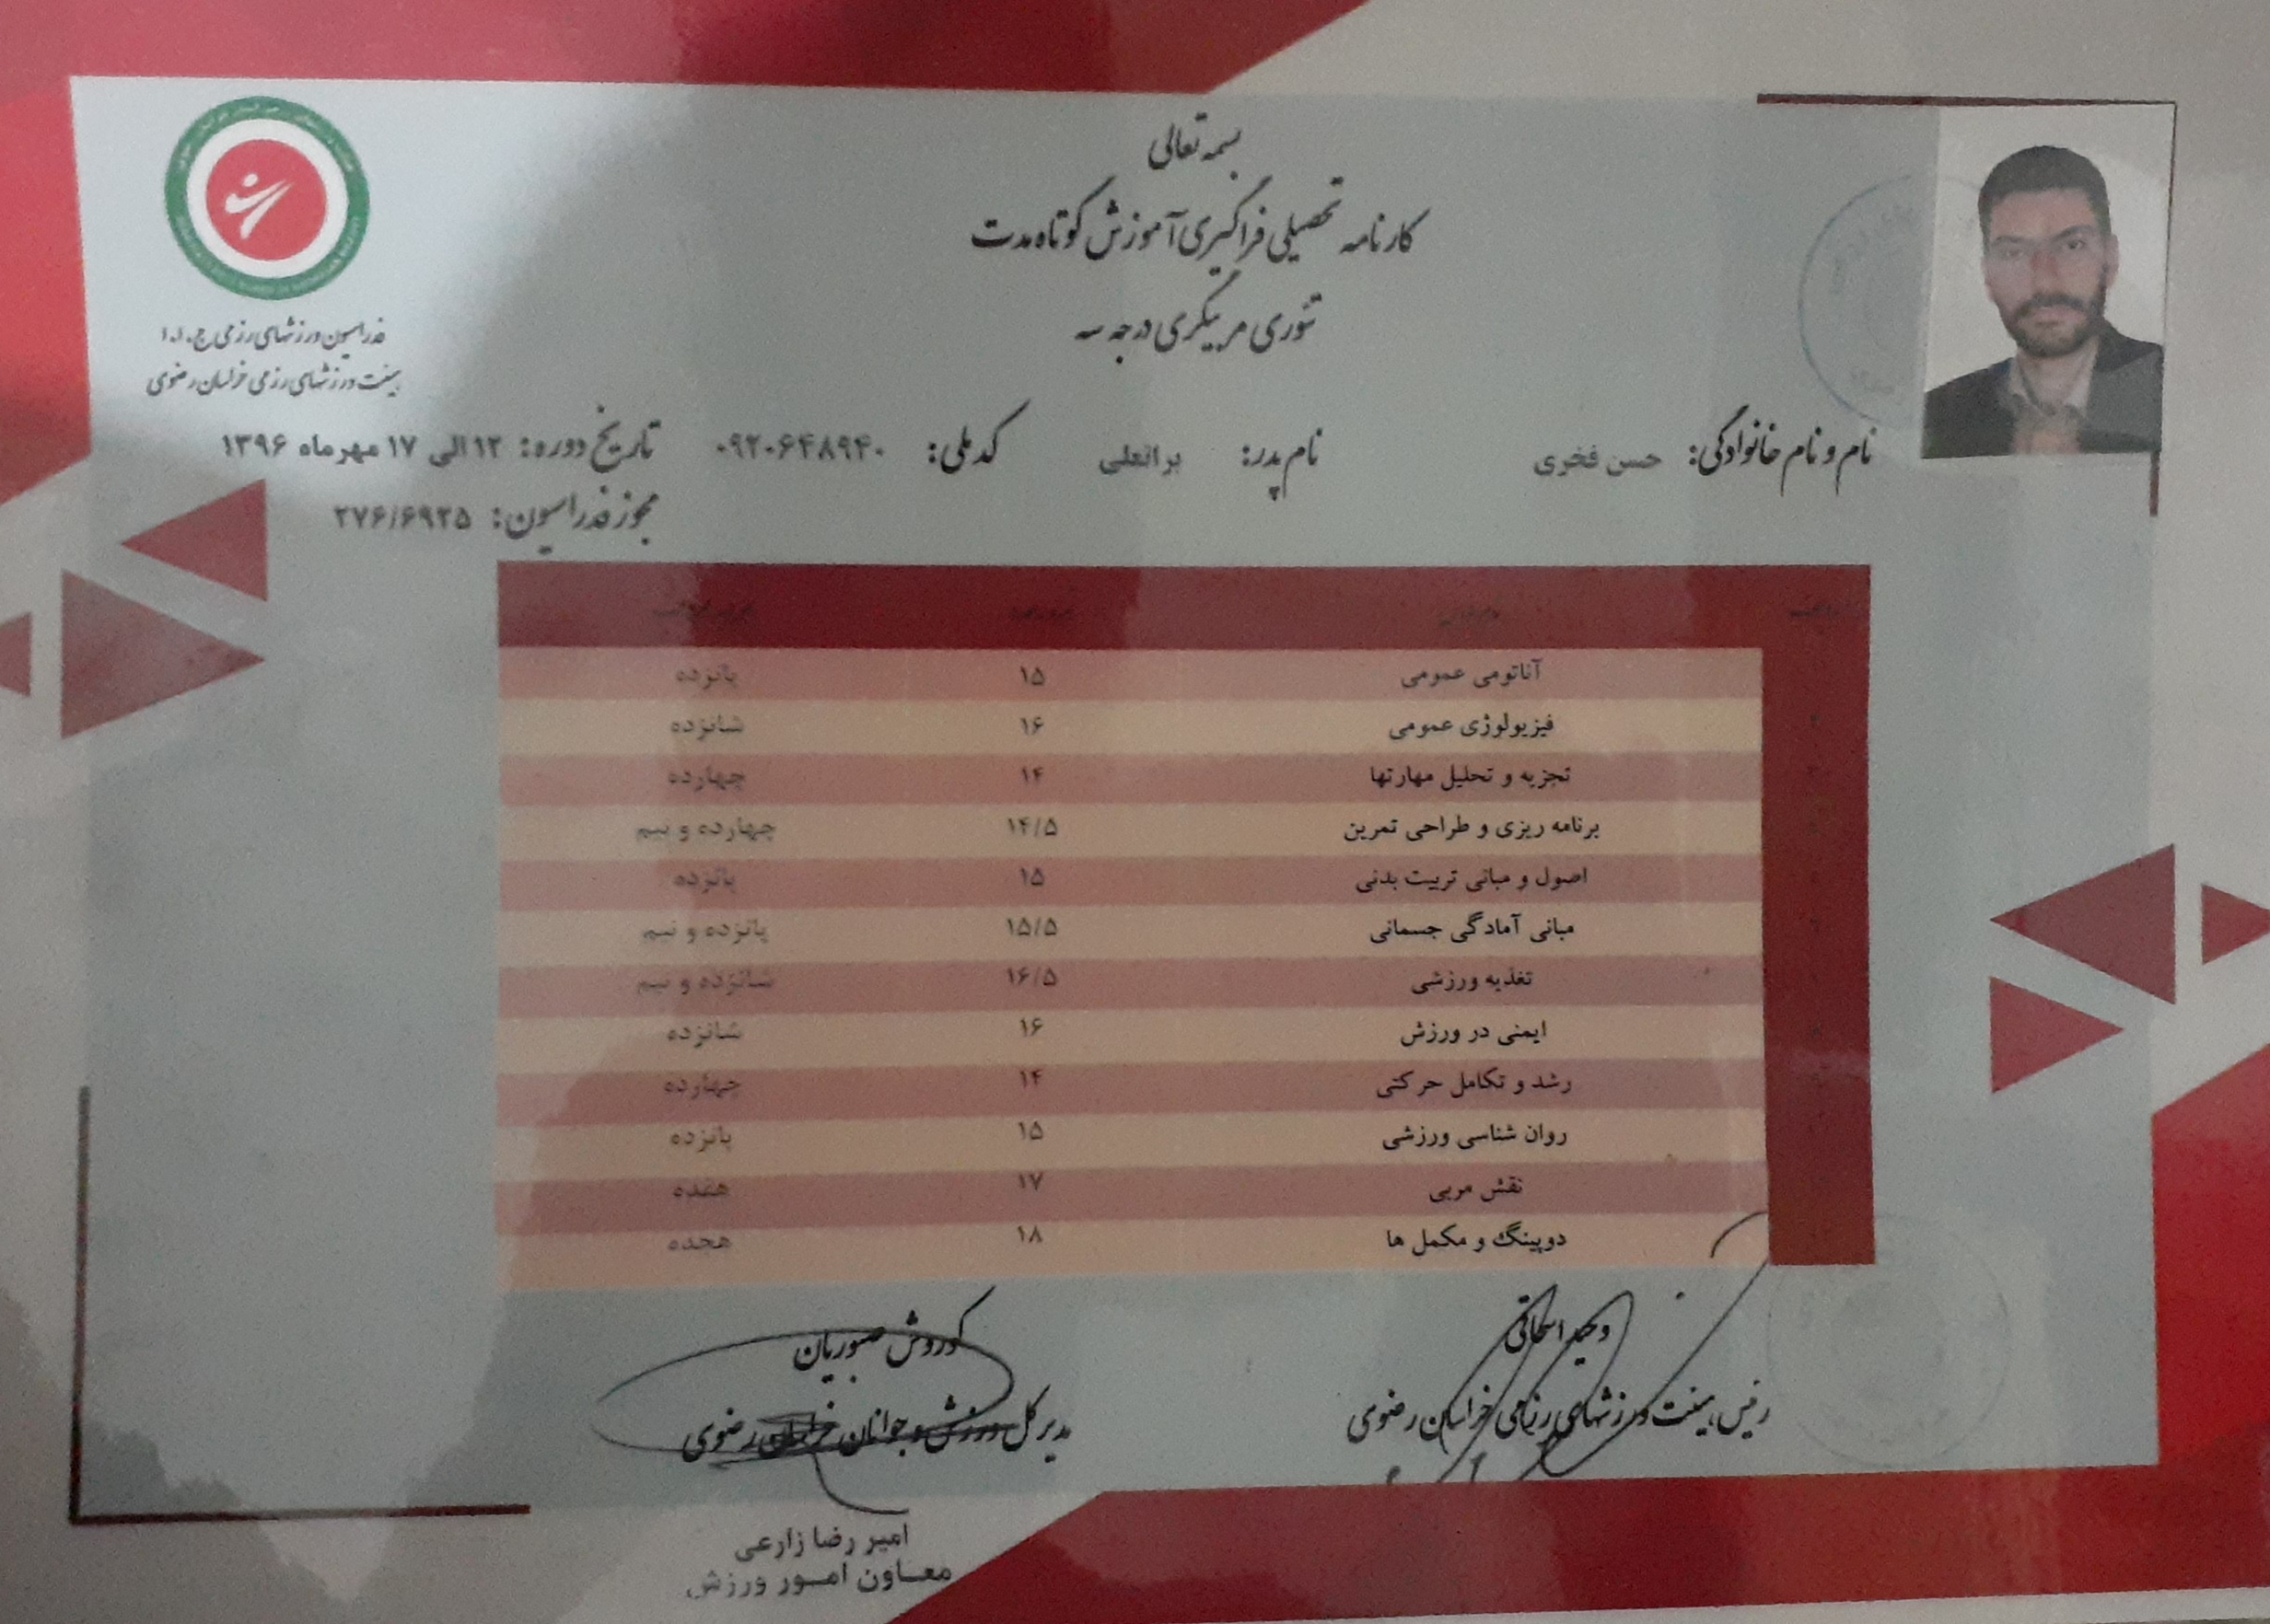 بسمه تعالی
کارنامه تحصیلی فراگیری آموزش کوتاه مدت
تئوری مربیگری درجه سه
فدراسیون ورزشهای رزمی ج.ا.ا
هیئت ورزشهای رزمی خراسان رضوی
نام و نام خانوادگی: حسن فخری نام پدر: براتعلی کد ملی: ۰۹۲۰۶۴۸۹۴۰ تاریخ دوره: ۱۲ الی ۱۷ مهرماه ۱۳۹۶
مجوز فدراسیون: ۲۷۶/۶۹۲۵
آناتومی عمومی ۱۵ پانزده
فیزیولوژی عمومی ۱۶ شانزده
تجزیه و تحلیل مهارتها ۱۴ چهارده
برنامه ریزی و طراحی تمرین ۱۴/۵ چهارده و نیم
اصول و مبانی تربیت بدنی ۱۵ پانزده
مبانی آمادگی جسمانی ۱۵/۵ پانزده و نیم
تغذیه ورزشی ۱۶/۵ شانزده و نیم
ایمنی در ورزش ۱۶ شانزده
رشد و تکامل حرکتی ۱۴ چهارده
روان شناسی ورزشی ۱۵ پانزده
نقش مربی ۱۷ هفده
دوپینگ و مکمل ها ۱۸ هجده
وحید اسحاقی
رئیس هیئت ورزشهای رزمی خراسان رضوی
کوروش صبوریان
مدیر کل ورزش و جوانان خراسان رضوی
امیر رضا زارعی
معاون امور ورزش